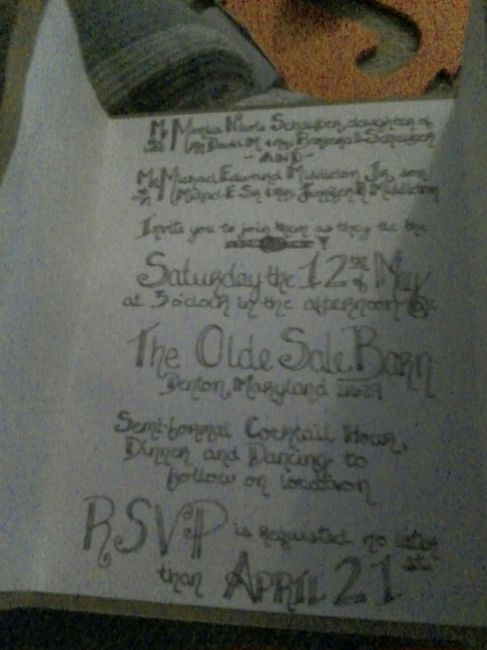 Ms Monica Nicole Schauber, daughter of
David M & Mrs.
-AND-
Mr Michael Edward Middleton Jr, son
Michael E Sr & Mrs. Jennifer R Middleton
Invite you to join them as they tie the
Saturday the 12th of May
at 3 o'clock in the afternoon @:
The Olde Sale Barn
Denton, Maryland
Semi-formal Cocktail Hour,
Dinner and Dancing to
follow on location
RSVP is requested no later
than APRIL 21st